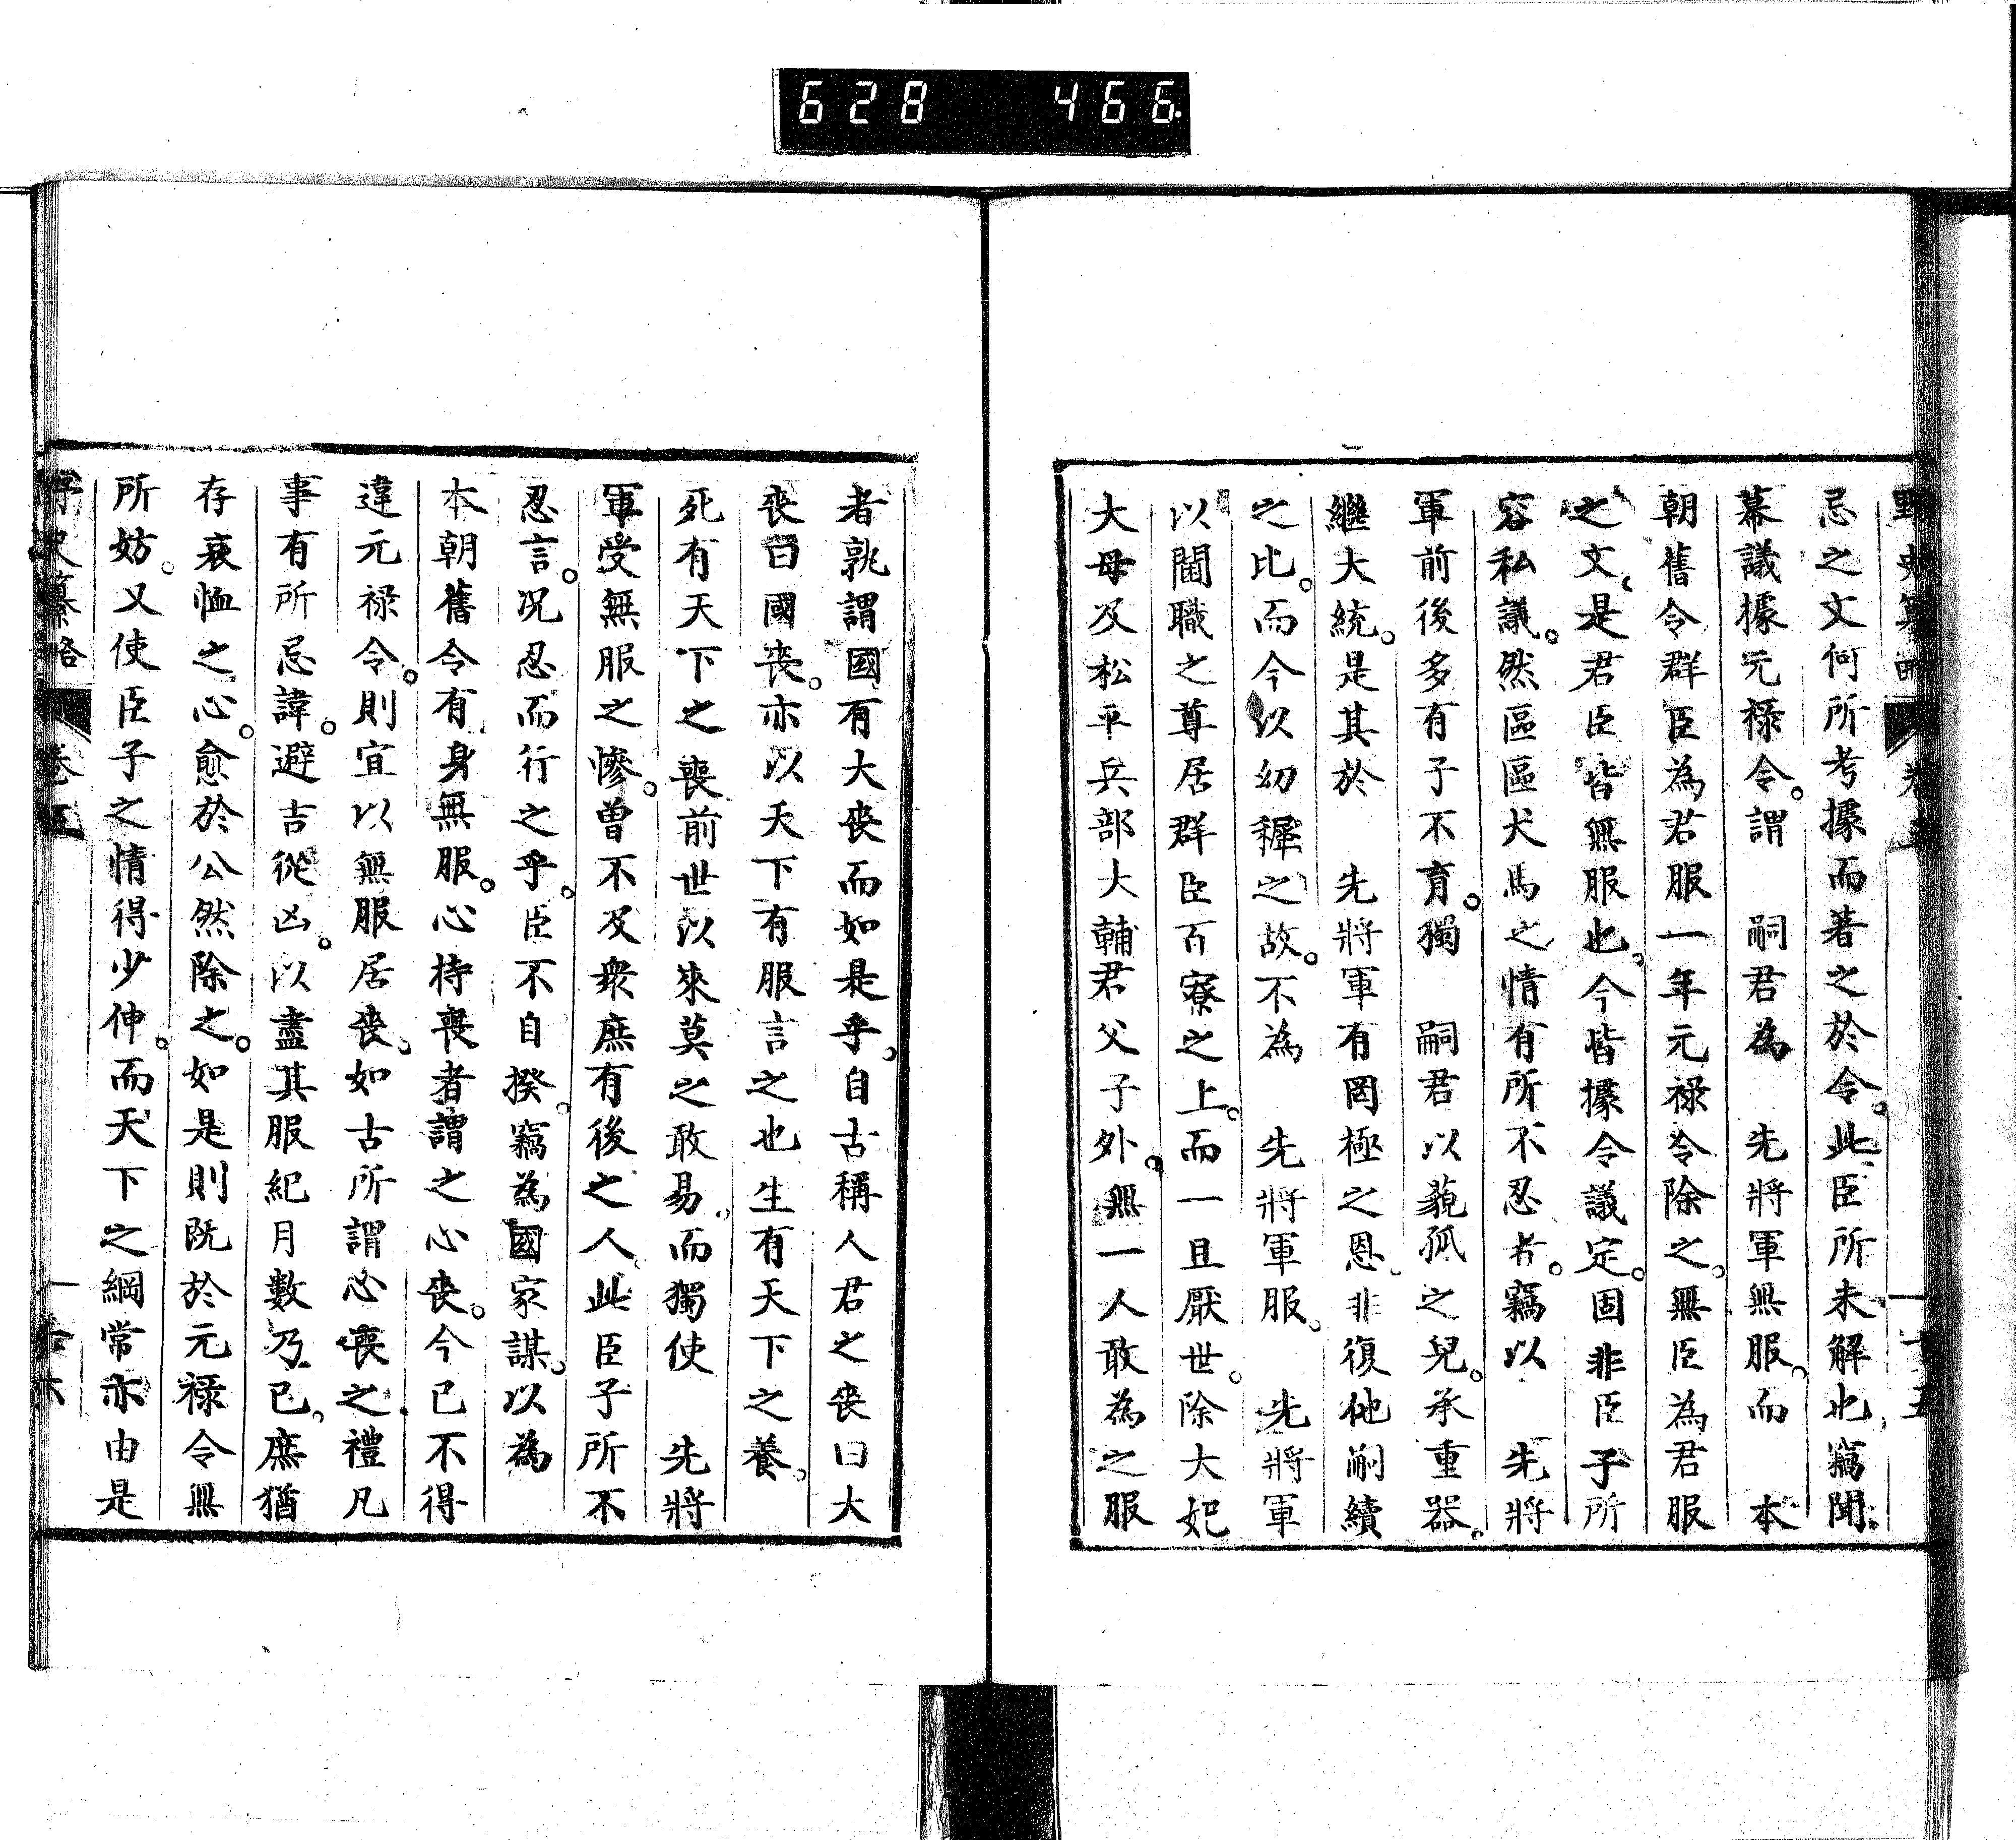 628 466
野史纂略 卷五 一 十五
忌之文何所考據而著之於令。此臣所未解也竊聞。
幕議據元禄令。謂 嗣君為 先將軍無服。而 本
朝舊令群臣為君服一年元禄令除之。無臣為君服
之文。是君臣皆無服也。今皆據令議定。固非臣子所
容私議。然區區犬馬之情有所不忍者。竊以 先將
軍前後多有子不育。獨 嗣君以藐孤之兒。承重器。
繼大統。是其於 先將軍有罔極之恩。非復他嗣續
之比。而今以幼穉之故。不為 先將軍服。 先將軍
以閫職之尊居群臣百寮之上。而一旦厭世。除大妃
大母及松平兵部大輔君父子外。無一人敢為之服
者孰謂國有大喪而如是乎。自古稱人君之喪曰大
喪曰國喪。亦以天下有服言之也生有天下之養。
死有天下之喪前世以來莫之敢易。而獨使 先將
軍受無服之慘。曾不及衆庶有後之人。此臣子所不
忍言。况忍而行之乎。臣不自揆。竊為國家謀。以為
本朝舊令有身無服。心持喪者謂之心喪。今已不得
違元禄令。則宜以無服居喪。如古所謂心喪之禮凡
事有所忌諱。避吉從凶。以盡其服紀月數乃已。庶猶
存哀恤之心。愈於公然除之。如是則既於元禄令無
所妨。又使臣子之情得少伸。而天下之綱常亦由是
野史纂略 卷五 一 十六